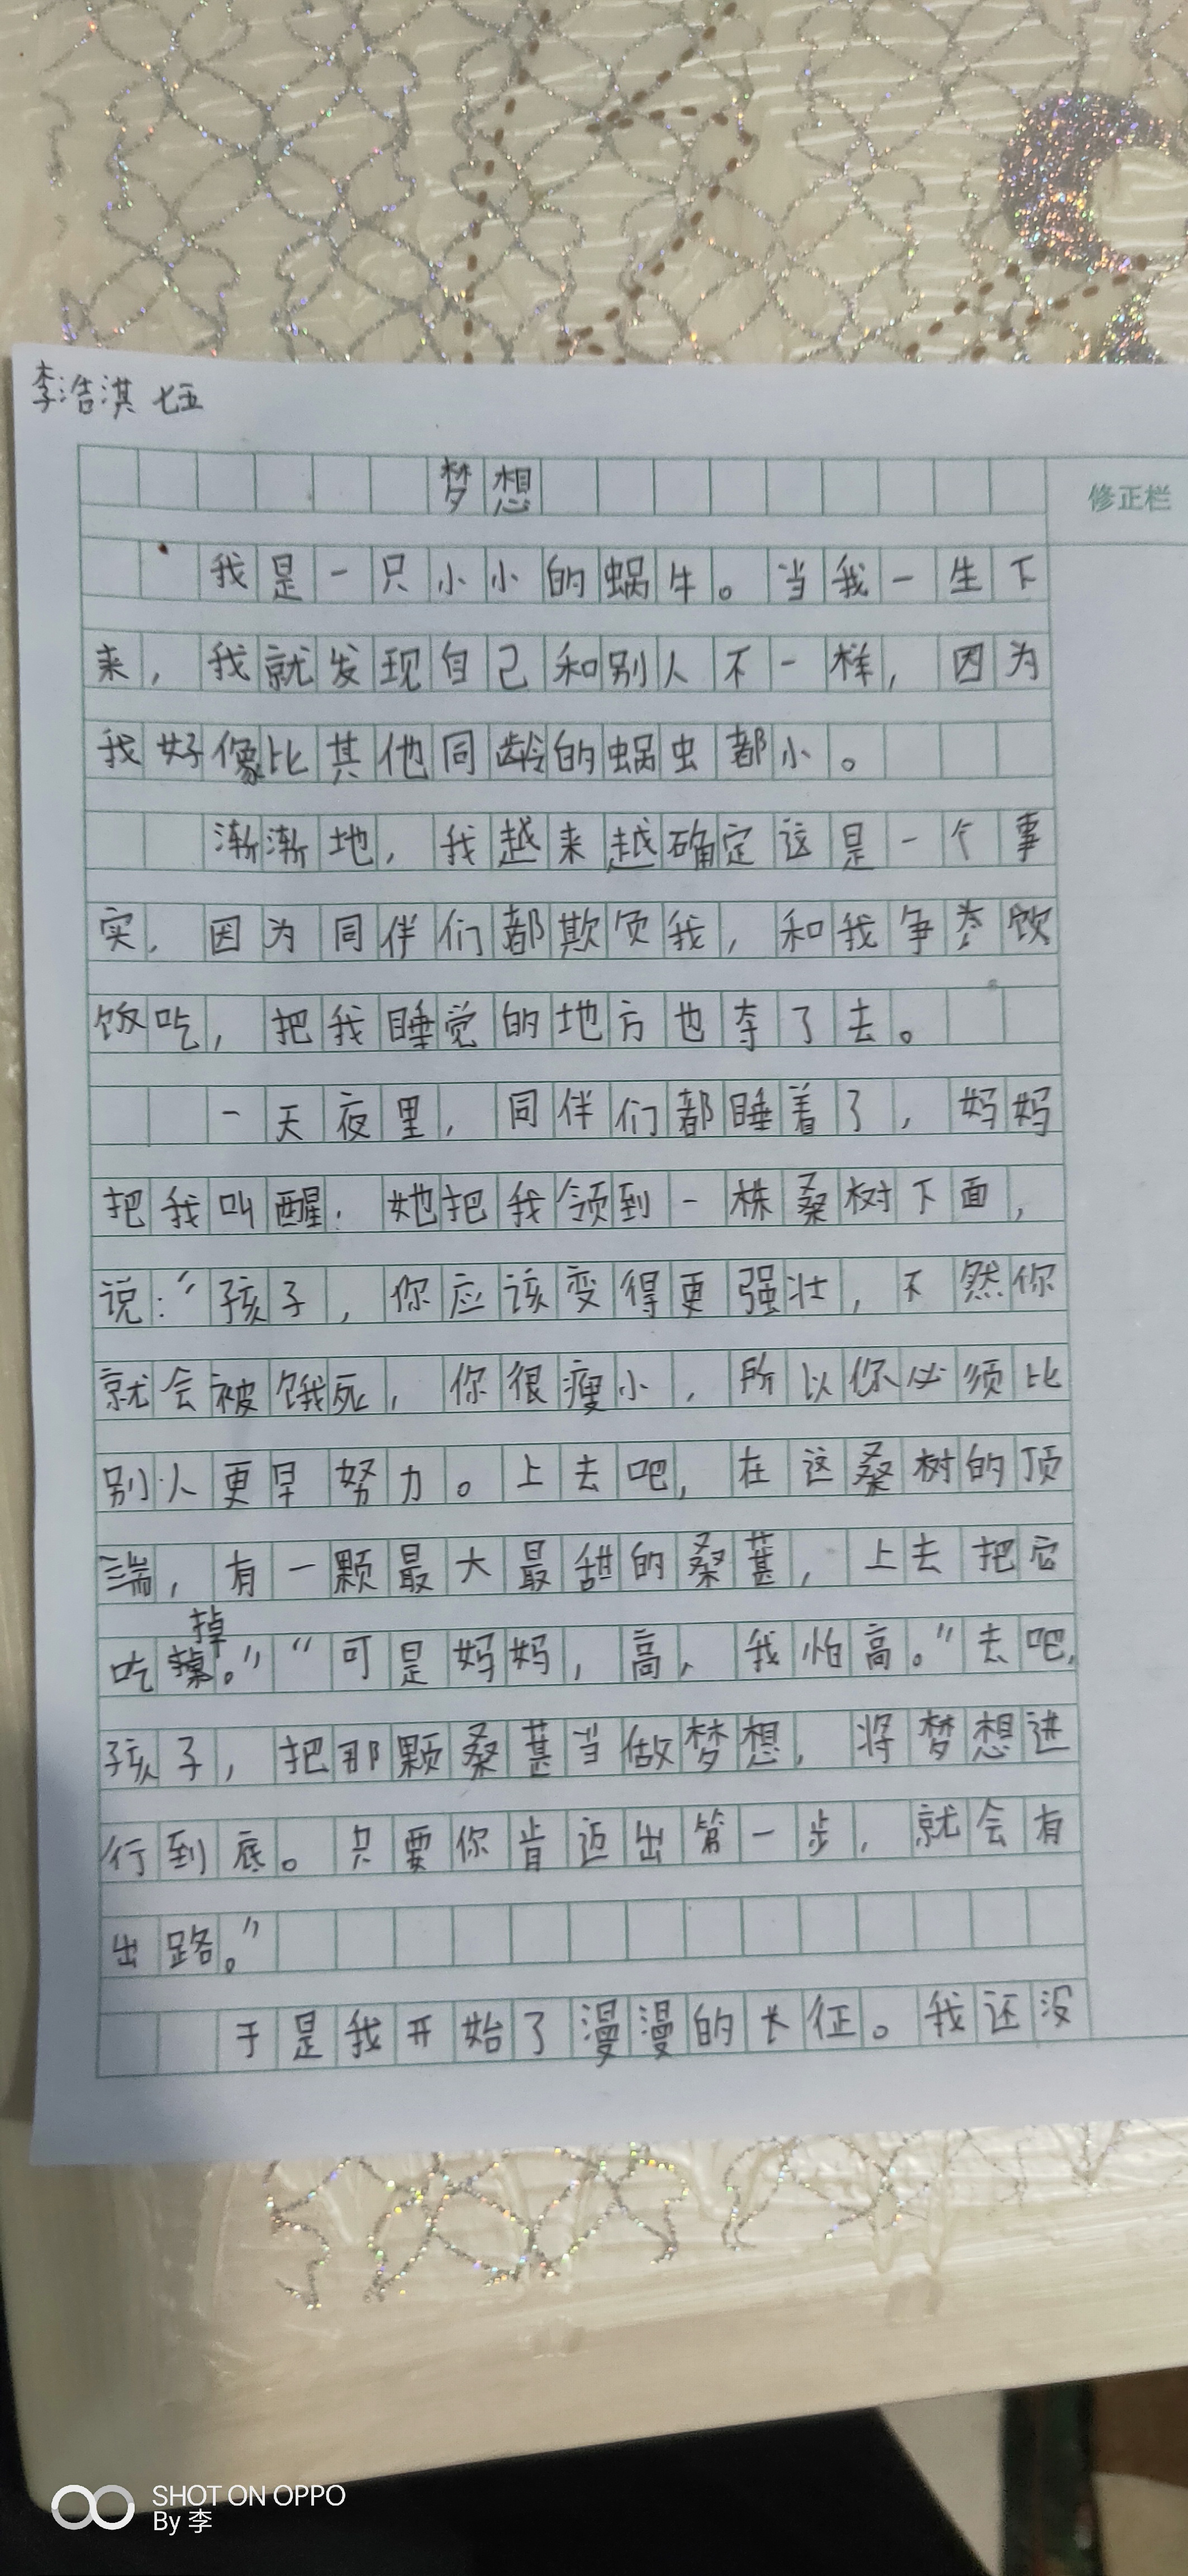 李浩淇 七五
梦想
修正栏
我是一只小小的蜗牛。当我一生下
来，我就发现自己和别人不一样，因为
我好像比其他同龄的蜗虫都小。
渐渐地，我越来越确定这是一个事
实，因为同伴们都欺负我，和我争夺饮
饭吃，把我睡觉的地方也夺了去。
一天夜里，同伴们都睡着了，妈妈
把我叫醒，她把我领到一株桑树下面，
说：“孩子，你应该变得更强壮，不然你
就会被饿死，你很瘦小，所以你必须比
别人更早努力。上去吧，在这桑树的顶
端，有一颗最大最甜的桑葚，上去把它
吃掉。”“可是妈妈，高，我怕高。”去吧，
孩子，把那颗桑葚当做梦想，将梦想进
行到底。只要你肯迈出第一步，就会有
出路。”
于是我开始了漫漫的长征。我还没
SHOT ON OPPO
By 李